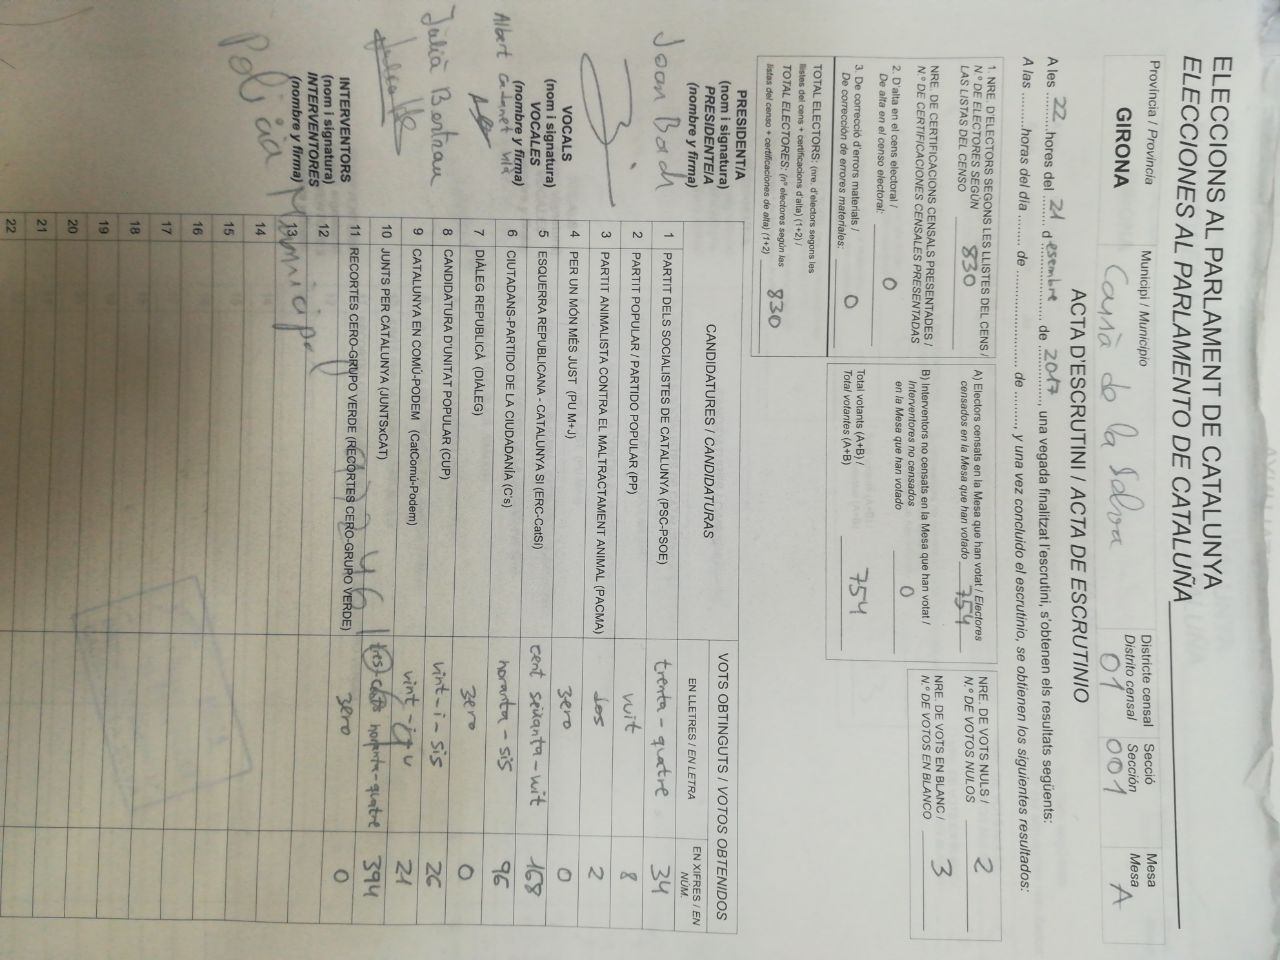 ELECCIONS AL PARLAMENT DE CATALUNYA
ELECCIONES AL PARLAMENTO DE CATALUÑA
Província / Provincia
GIRONA
Municipi / Municipio
Cassà de la Selva
Districte censal
Distrito censal
01
Secció
Sección
001
Mesa
Mesa
A
ACTA D'ESCRUTINI / ACTA DE ESCRUTINIO
A les 22 hores del 21 desembre de 2017, una vegada finalitzat l'escrutini, s'obtenen els resultats següents:
A las ......... horas del día ........ de ..................... de ........., y una vez concluido el escrutinio, se obtienen los siguientes resultados:
1. NRE. D'ELECTORS SEGONS LES LLISTES DEL CENS /
N.º DE ELECTORES SEGÚN
LAS LISTAS DEL CENSO 830
NRE. DE CERTIFICACIONS CENSALS PRESENTADES /
N.º DE CERTIFICACIONES CENSALES PRESENTADAS
2. D'alta en el cens electoral /
De alta en el censo electoral: 0
3. De correcció d'errors materials /
De corrección de errores materiales: 0
TOTAL ELECTORS: (nre. d'electors segons les
llistes del cens + certificacions d'alta) (1+2) /
TOTAL ELECTORES: (nº electores según las
listas del censo + certificaciones de alta) (1+2) 830
A) Electors censats en la Mesa que han votat / Electores
censados en la Mesa que han votado 754
B) Interventors no censats en la Mesa que han votat /
Interventores no censados
en la Mesa que han votado 0
Total votants (A+B) /
Total votantes (A+B) 754
NRE. DE VOTS NULS /
N.º DE VOTOS NULOS 2
NRE. DE VOTS EN BLANC /
N.º DE VOTOS EN BLANCO 3
PRESIDENT/A
(nom i signatura)
PRESIDENTE/A
(nombre y firma)
Joan Bosch
VOCALS
(nom i signatura)
VOCALES
(nombre y firma)
Albert
Julià Bertran
INTERVENTORS
(nom i signatura)
INTERVENTORES
(nombre y firma)
Policia Municipal
CANDIDATURES / CANDIDATURAS
VOTS OBTINGUTS / VOTOS OBTENIDOS
EN LLETRES / EN LETRA
EN XIFRES / EN NÚM.
1 PARTIT DELS SOCIALISTES DE CATALUNYA (PSC-PSOE) trenta-quatre 34
2 PARTIT POPULAR / PARTIDO POPULAR (PP) vuit 8
3 PARTIT ANIMALISTA CONTRA EL MALTRACTAMENT ANIMAL (PACMA) dos 2
4 PER UN MÓN MÉS JUST (PU M+J) zero 0
5 ESQUERRA REPUBLICANA - CATALUNYA SI (ERC-CatSí) cent seixanta-vuit 168
6 CIUTADANS-PARTIDO DE LA CIUDADANÍA (C's) noranta-sis 96
7 DIÀLEG REPUBLICÀ (DIÀLEG) zero 0
8 CANDIDATURA D'UNITAT POPULAR (CUP) vint-i-sis 26
9 CATALUNYA EN COMÚ-PODEM (CatComú-Podem) vint-i-u 21
10 JUNTS PER CATALUNYA (JUNTSxCAT) tres-cents noranta-quatre 394
11 RECORTES CERO-GRUPO VERDE (RECORTES CERO-GRUPO VERDE) zero 0
12
13
14
15
16
17
18
19
20
21
22